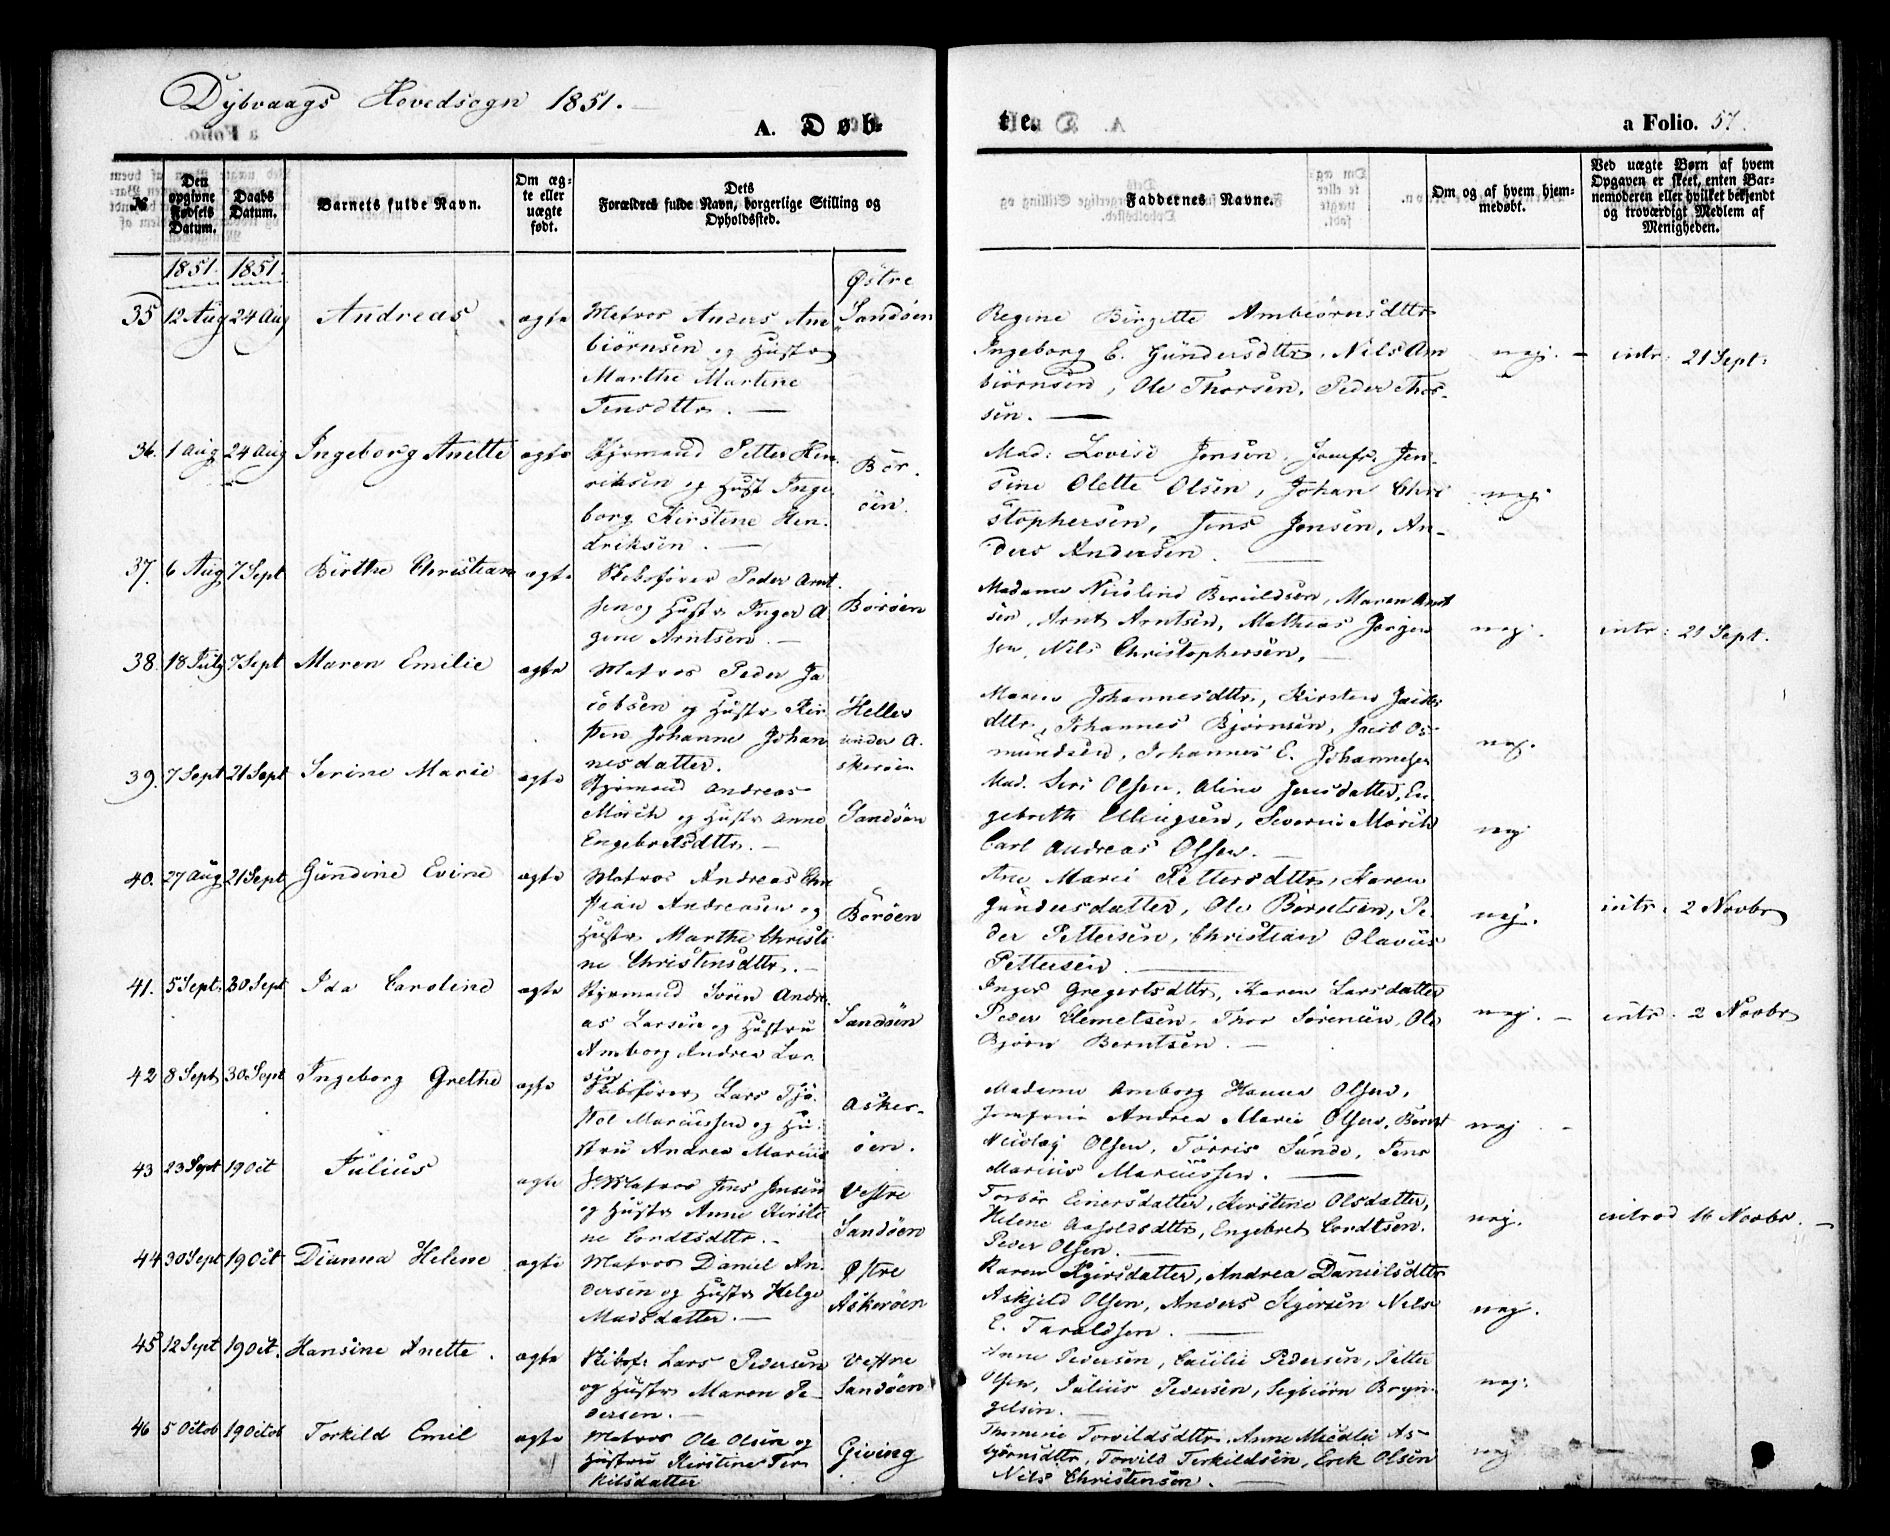 Dybvaags Hovedsogn 1851.
A. Døb-
te.
a Folio. 57.
№
Den opgivne Fødsels Datum.
Daabs Datum.
Barnets fulde Navn.
Om ægte eller uægte født.
Dets Forældres fulde Navn, borgerlige Stilling og Opholdssted.
Faddernes Navne.
Om og af hvem hjemmedøbt.
Ved uægte Børn af hvem Opgaven er skeet, enten Barnemoderen eller hvilket bekjendt og troværdigt Medlem af Menigheden.
1851. 1851.
35 12 Aug 24 Aug Andreas ægte
Matros Anders Am
biørnsen og Hustr
Marthe Martine
Jensdttr.
Østre
Sandøen
Regine Birgitte Ambiørnsdttr
Ingeborg E. Gundersdttr, Nils Am
biørnsen, Ole Thorsen, Peder Thor-
sen.
nej. intr: 21 Sept.
36. 1 Aug 24 Aug Ingeborg Anette ægte
Styrmand Petter Hen
riksen og Hust Inge
borg Kirstine Hen.
driksen.
Bor.
øen.
Mad: Lovise Jensen, Jomfr. Jen-
sine Olette Olsen, Johan Chri
stophersen, Jens Jensen, An-
ders Andersen.
nej
37. 6 Aug 7 Sept Birthe Christiane ægte
Skibsfører Peder Arnt
sen og Hustr Inger A
gine Arntsen.
Borøen
Madame Nicoline Beruldsen, Maren Arnt
sen, Arnt Arntsen, Mathias Jørgen
sen, Nils Christophersen.
nej. intr: 21 Sept.
38. 18 July 7 Sept Maren Emilie ægte
Matros Peder Ja
cobsen og Hustr Kir
sten Johanne Johan
nesdatter.
Helle
under A.
skerøen
Maren Johannesdttr, Kirsten Jacobs
dttr, Johannes Bjørnsen, Jacob Os-
mundsen, Johannes E. Johannesen
nej.
39. 7 Sept 21 Sept Serine Marie ægte
Styrmand Andreas
Mørch og Hustr Anne
Engebretsdttr.
Sandøen
Mad. Siri Olsen, Aline Jensdatter, En
gebreth Ellingsen, Severin Mørch
Carl Andreas Olsen.
nej
40. 27 Aug 21 Sept Gundine Evine ægte
Matros Andreas Chri
stian Andreasen og
Hustr Marthe Christi
ne Christensdttr.
Borøen
Ane Marie Pettersdttr, Karen
Gundersdatter, Ole Berntsen, Pe-
der Pettersen, Christian Olavus
Pettersen.
nej. intr: 2 Novbr
41. 5 Sept. 30 Sept Ida Caroline ægte
Styrmand Søren Andre
as Larsen og Hustru
Amborg Andrea Lar
sen
Sandøen
Inger Gregertsdttr, Karen Larsdatter
Peder Clemetsen, Thor Sørensen, Ole
Bjørn Berntsen.
nej. intr: 2 Novbr
42 8 Sept 30 Sept Ingeborg Grethe ægte
Skibsfører Lars Tjø.
stol Marcussen og Hu.
stru Andrea Marcus
Asker-
øen.
Madame Amborg Hanna Olsen,
Jomfrue Andrea Marie Olsen, Bernt
Nicolay Olsen, Tørris Sunde, Jens
Marius Marcussen.
nej
43 23 Sept 19 Oct Julius ægte
Matros Jens Jensen
og Hustr Anne Kirsti
ne Cordtsdttr.
Vestre
Sandøen
Torbør Einersdatter, Kirstine Olsdatter,
Helene Aasoldsdttr, Engebret Cordtsen,
Peder Olsen.
nej. introd 16 Novbr.
44 30 Sept 19 Oct Dianna Helene ægte
Matros Daniel An.
dersen og Hustr Helge
Madsdatter.
Østre
Askerøen
Karen Sjøersdatter, Andrea Danielsdttr
Askjeld Olsen, Anders Sigersen Nels
E. Taraldsen.
nej.
45 12 Sept 19 Oct. Hansine Anette. ægte
Skibsf: Lars Pedersen
og Hustr Maren Pe-
dersen.
Vestre
Sandøen
Anne Pedersen, Cecilie Pedersen, Petter
Olsen, Julius Pedersen, Segbiørn Bryn-
gelsen.
nej.
46 5 Octob 19 Octob Torkild Emil ægte
Matros Ole Olsen og
Hustru Kirstine Ter
kilsdatter
Giving
Thomine Torvildsdttr, Anne Micalea As-
bjørnsdttr, Torvild Terkildsen, Erik Olsen
Nils Christensen.
nej